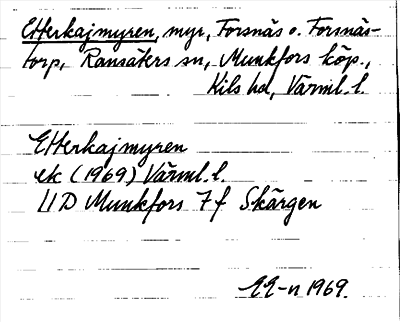 Etterkajmyren, myr, Forsnäs o. Forsnäs-
torp, Ransäters sn, Munkfors köp.,
Kils hd, Värml. l.
Etterkajmyren
ek (1969) Värml. l.
11D Munkfors 7f Skärgen
1969.